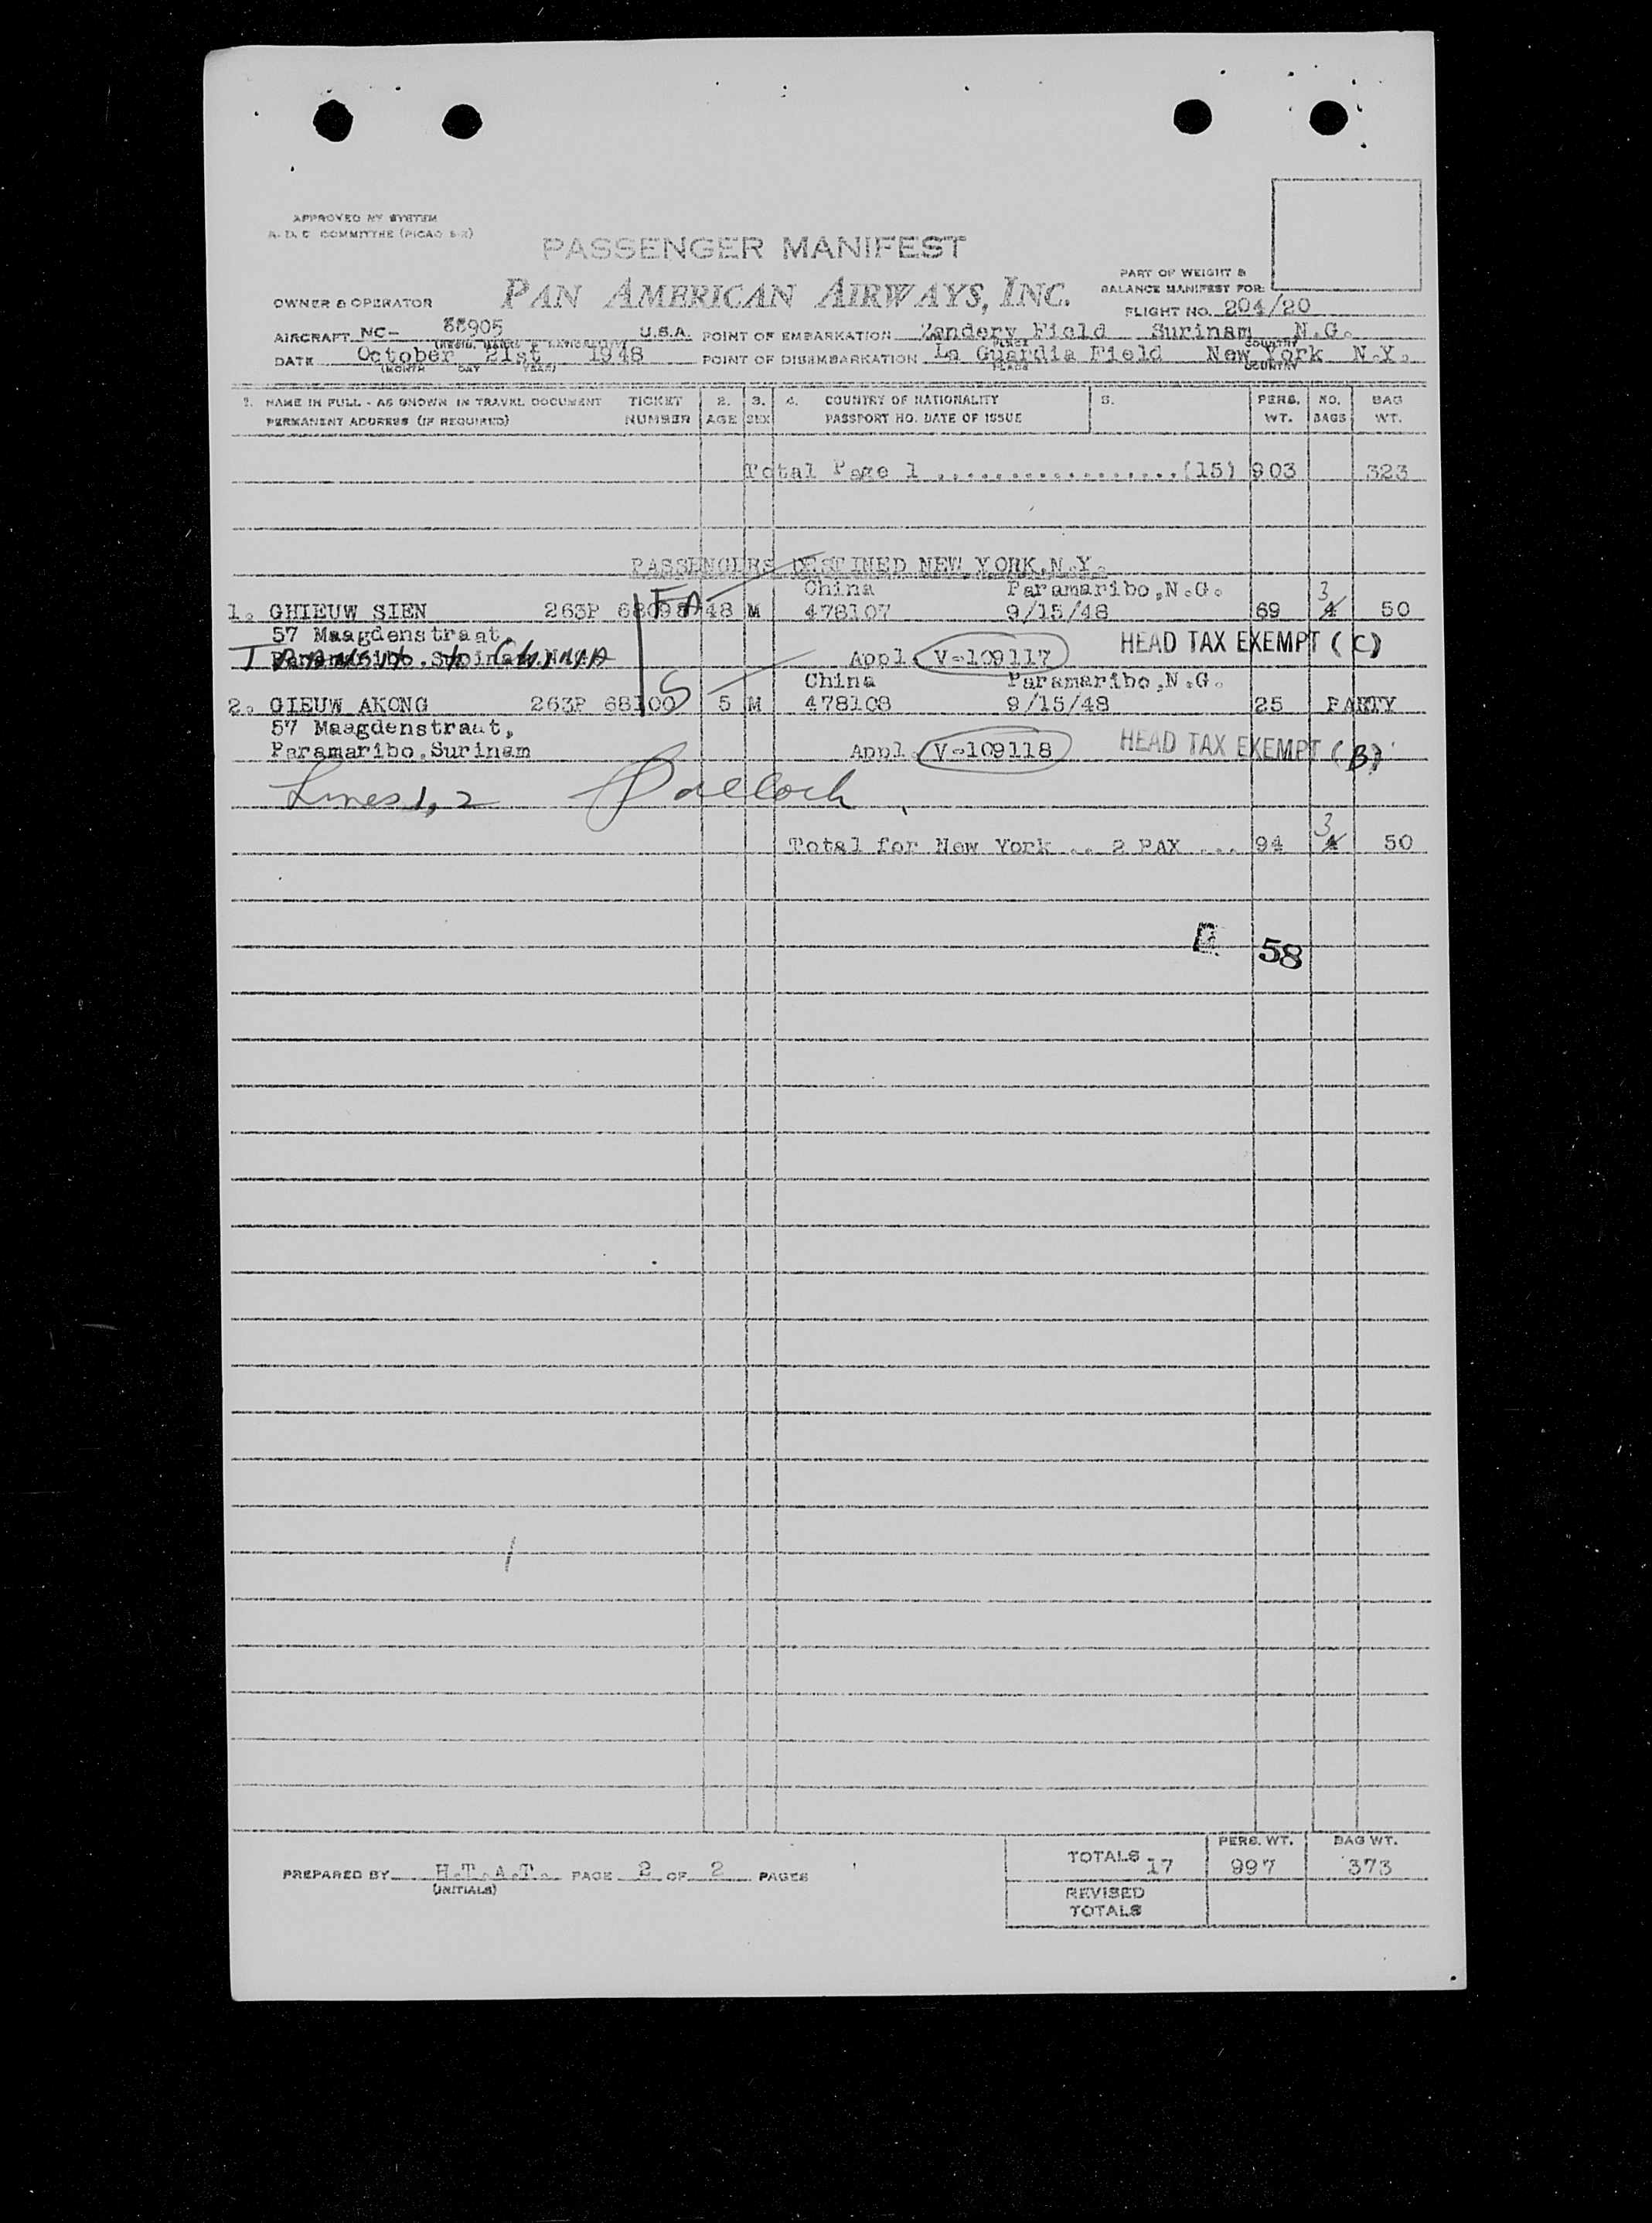 APPROVED BY SYSTEM
A.D.C COMMITTEE (PICAO S-2)
PASSENGER MANIFEST
PAN AMERICAN AIRWAYS, INC.
PART OF WEIGHT &
BALANCE MANIFEST FOR
OWNER & OPERATOR
FLIGHT NO. 204/20
AIRCRAFT NC- 88905 U.S.A. POINT OF EMBARKATION Zandery Field Surinam N.G.
PLACE COUNTRY
DATE October 21st 1948 POINT OF DISEMBARKATION La Guardia Field New York N.Y.
(MONTH DAY YEAR) PLACE COUNTRY
1. NAME IN FULL - AS SHOWN IN TRAVEL DOCUMENT TICKET 2. 3. 4. COUNTRY OF NATIONALITY 5. PERS. NO. BAG
PERMANENT ADDRESS (IF REQUIRED) NUMBER AGE SEX PASSPORT NO. DATE OF ISSUE WT. BAGS WT.
Total Page 1 ..................(15) 903 323
PASSENGERS DESTINED NEW YORK,N.Y.
China Paramaribo,N.G. 3
1. GHIEUW SIEN 263P 68098 FA 48 M 478107 9/15/48 69 4 50
57 Maagdenstraat,
HEAD TAX EXEMPT (C)
Paramaribo.Surinam
TRANSIT to CHINA
Appl. V-109117
China Paramaribo,N.G.
2. GIEUW AKONG 263P 68100 S 5 M 478108 9/15/48 25 PARTY
57 Maagdenstraat,
Paramaribo.Surinam Appl. V-109118 HEAD TAX EXEMPT (B)
Lines 1, 2
3
Total for New York .. 2 PAX ... 94 4 50
58
PREPARED BY H.T.A.T. PAGE 2 OF 2 PAGES
(INITIALS)
PERS. WT. BAG WT.
TOTALS 17 997 373
REVISED
TOTALS